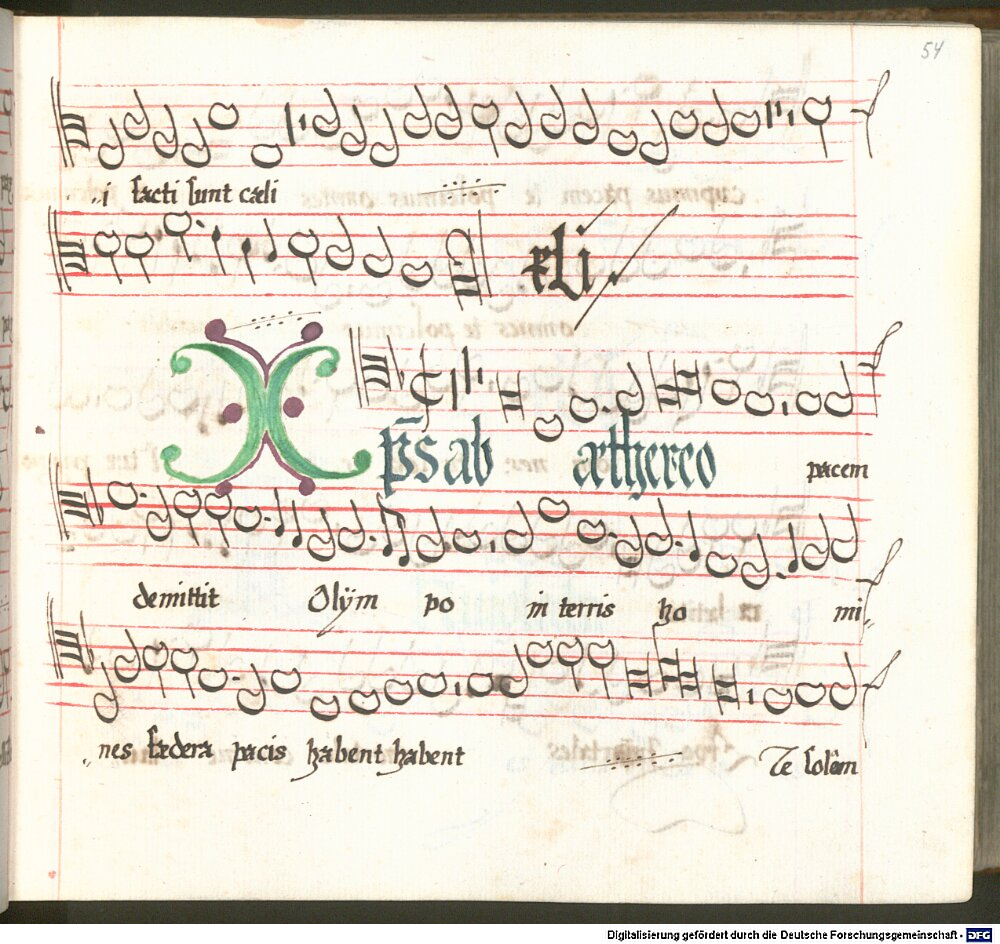 54
i facti sunt cæli
xli
Xp̄s ab æthereo pacem
demittit Olÿm po in terris ho mi
nes fœdera pacis habent habent Te solũm
Digitalisierung gefördert durch die Deutsche Forschungsgemeinschaft - DFG